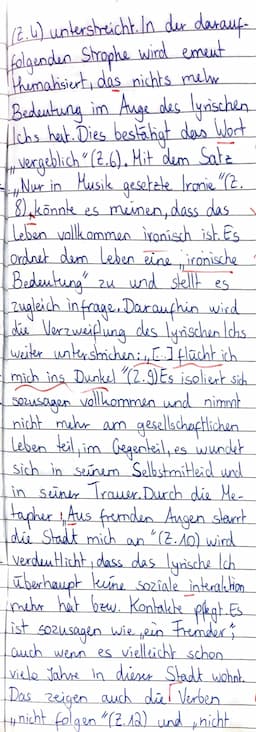 (Z.4) unterstreicht. In der darauf-
folgenden Strophe wird erneut
thematisiert, das nichts mehr
Bedeutung im Auge des lyrischen
Ichs hat. Dies bestätigt das Wort
„vergeblich" (Z.6). Mit dem Satz
„Nur in Musik gesetzte Ironie" (Z.
8), könnte es meinen, dass das
Leben vollkommen ironisch ist. Es
ordnet dem Leben eine „ironische
Bedeutung" zu und stellt es
zugleich infrage. Daraufhin wird
die Verzweiflung des lyrischen Ichs
weiter unterstrichen: „[...] flücht ich
mich ins Dunkel" (Z.9) Es isoliert sich
sozusagen vollkommen und nimmt
nicht mehr am gesellschaftlichen
Leben teil, im Gegenteil, es wundet
sich in seinem Selbstmitleid und
in seiner Trauer. Durch die Me-
tapher „Aus fremden Augen starrt
die Stadt mich an" (Z.10) wird
verdeutlicht, dass das lyrische Ich
überhaupt keine soziale interaktion
mehr hat bzw. Kontakte pflegt. Es
ist sozusagen wie „ein Fremder",
auch wenn es vielleicht schon
viele Jahre in dieser Stadt wohnt.
Das zeigen auch die Verben
„nicht folgen" (Z.12) und „nicht